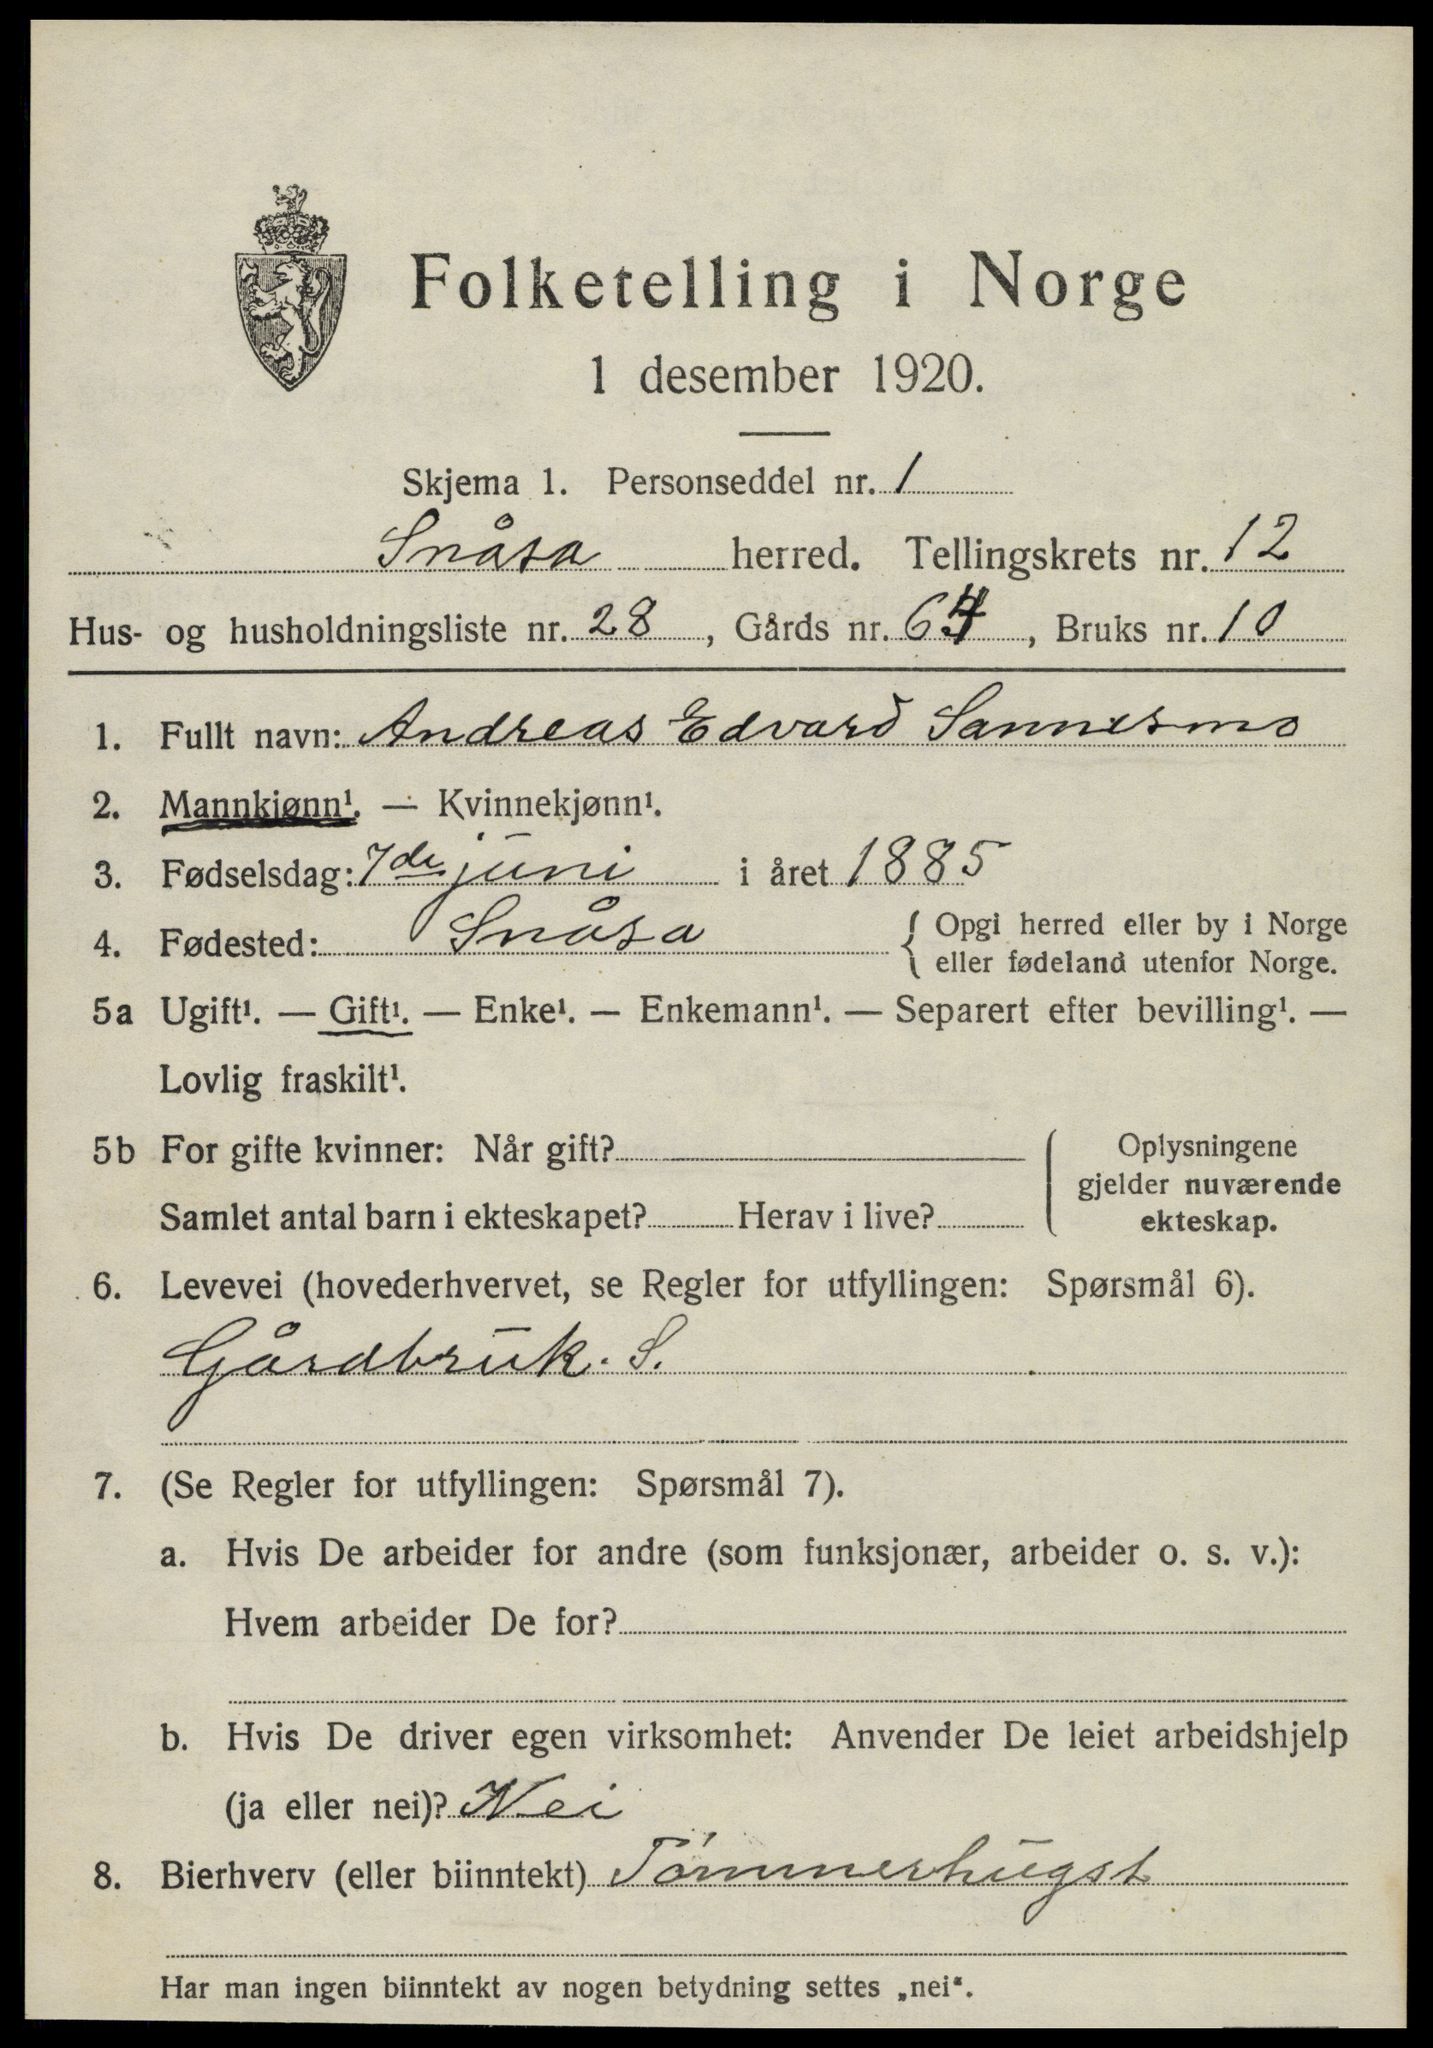 Folketelling i Norge
1 desember 1920.
Skjema 1. Personseddel nr. 1
Snåsa herred. Tellingskrets nr. 12
Hus- og husholdningsliste nr. 28, Gårds nr. 64, Bruks nr. 10
1. Fullt navn: Andreas Edvard Sannesmo
2. Mannkjønn¹. — Kvinnekjønn¹.
3. Fødselsdag: 7de juni i året 1885
4. Fødested: Snåsa { Opgi herred eller by i Norge
eller fødeland utenfor Norge.
5a Ugift¹. — Gift¹. — Enke¹. — Enkemann¹. — Separert efter bevilling¹. —
Lovlig fraskilt¹.
5b For gifte kvinner: Når gift?
Samlet antal barn i ekteskapet? Herav i live?
Oplysningene
gjelder nuværende
ekteskap.
6. Levevei (hovederhvervet, se Regler for utfyllingen: Spørsmål 6).
Gårdbruk. S.
7. (Se Regler for utfyllingen: Spørsmål 7).
a. Hvis De arbeider for andre (som funksjonær, arbeider o. s. v.):
Hvem arbeider De for?
b. Hvis De driver egen virksomhet: Anvender De leiet arbeidshjelp
(ja eller nei)? Nei
8. Bierhverv (eller biinntekt) Tømmerhugst
Har man ingen biinntekt av nogen betydning settes „nei“.